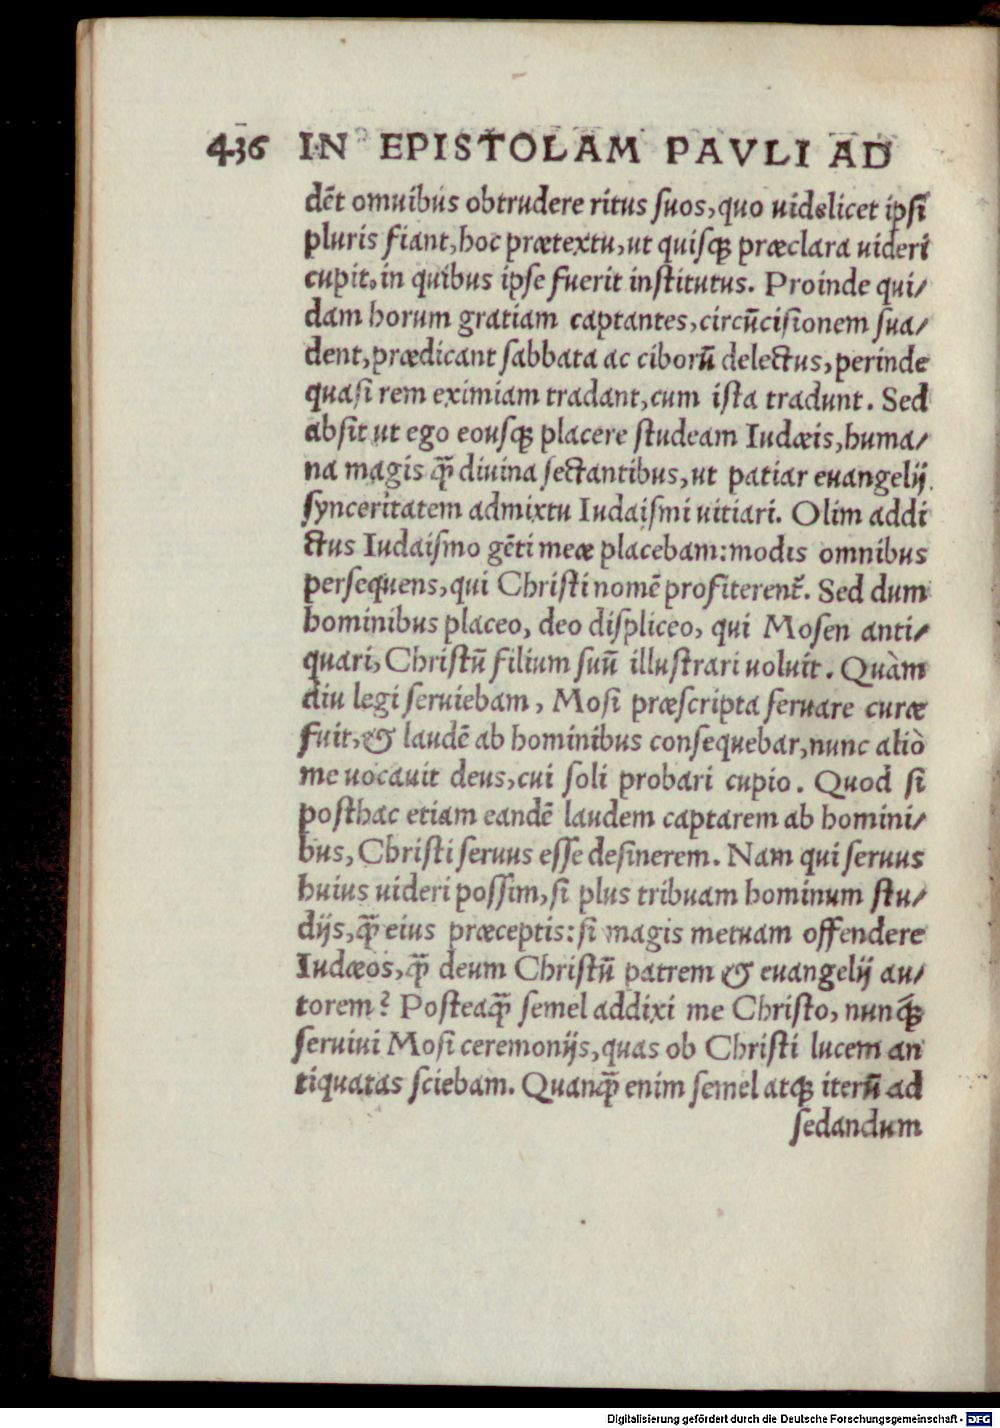 436 IN EPISTOLAM PAVLI AD
dẽt omnibus obtrudere ritus suos, quo uidelicet ipsi
pluris fiant, hoc prætextu, ut quisqꝫ præclara uideri
cupit, in quibus ipse fuerit institutus. Proinde qui/
dam horum gratiam captantes, circũcisionem sua/
dent, prædicant sabbata ac ciborũ delectus, perinde
quasi rem eximiam tradant, cum ista tradunt. Sed
absit ut ego eousqꝫ placere studeam Iudæis, huma/
na magis q̃ diuina sectantibus, ut patiar euangelij
synceritatem admixtu Iudaismi uitiari. Olim addi
ctus Iudaismo gẽti meæ placebam: modis omnibus
persequens, qui Christi nomẽ profiterent᷑. Sed dum
hominibus placeo, deo displiceo, qui Mosen anti/
quari, Christũ filium suũ illustrari uoluit. Quàm
diu legi seruiebam, Mosi præscripta seruare curæ
fuit, & laudẽ ab hominibus consequebar, nunc aliò
me uocauit deus, cui soli probari cupio. Quod si
posthac etiam eandẽ laudem captarem ab homini/
bus, Christi seruus esse desinerem. Nam qui seruus
huius uideri possim, si plus tribuam hominum stu/
dijs, q̃ eius præceptis: si magis metuam offendere
Iudæos, q̃ deum Christũ patrem & euangelij au/
torem? Posteaq̃ semel addixi me Christo, nunq̃ꝫ
seruiui Mosi ceremonijs, quas ob Christi lucem an
tiquatas sciebam. Quanq̃ enim semel atqꝫ iterũ ad
sedandum
Digitalisierung gefördert durch die Deutsche Forschungsgemeinschaft - DFG